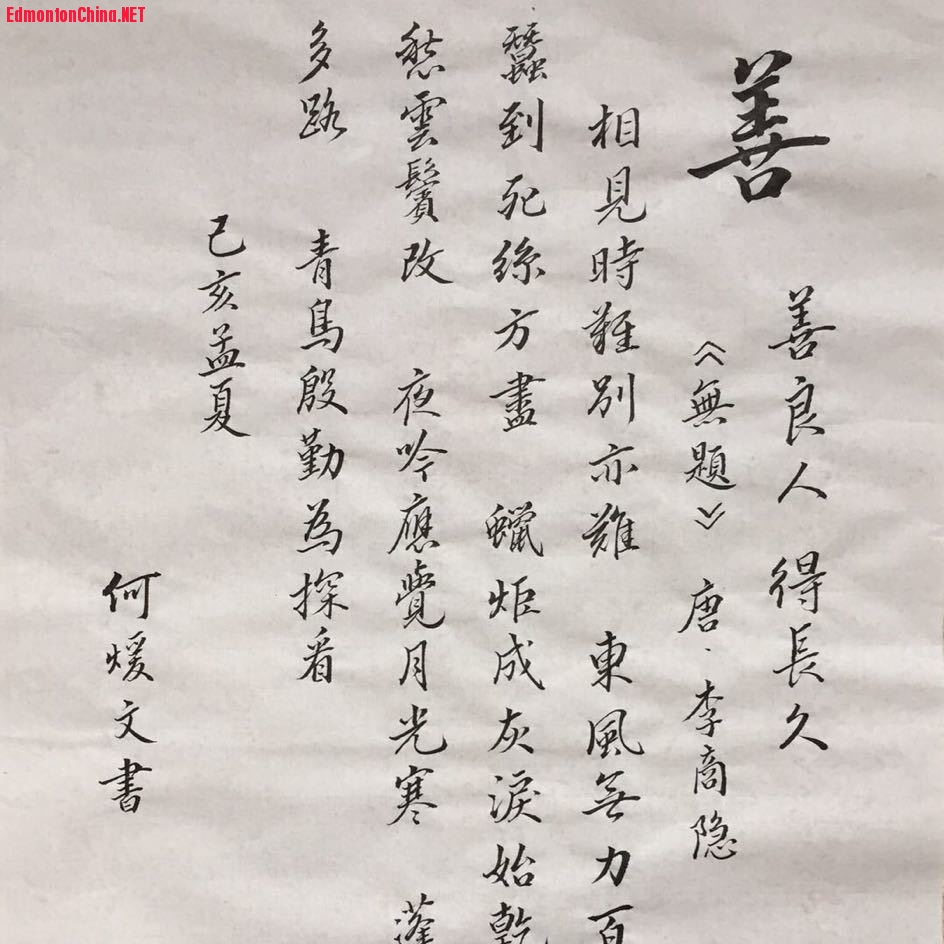 EdmontonChina.NET
善
善良人 得長久
《無題》 唐·李商隐
相見時難別亦難 東風無力百
蠶到死絲方盡 蠟炬成灰淚始乾
愁雲鬢改 夜吟應覺月光寒 蓬
多路 青鳥殷勤為探看
己亥孟夏
何煖文書